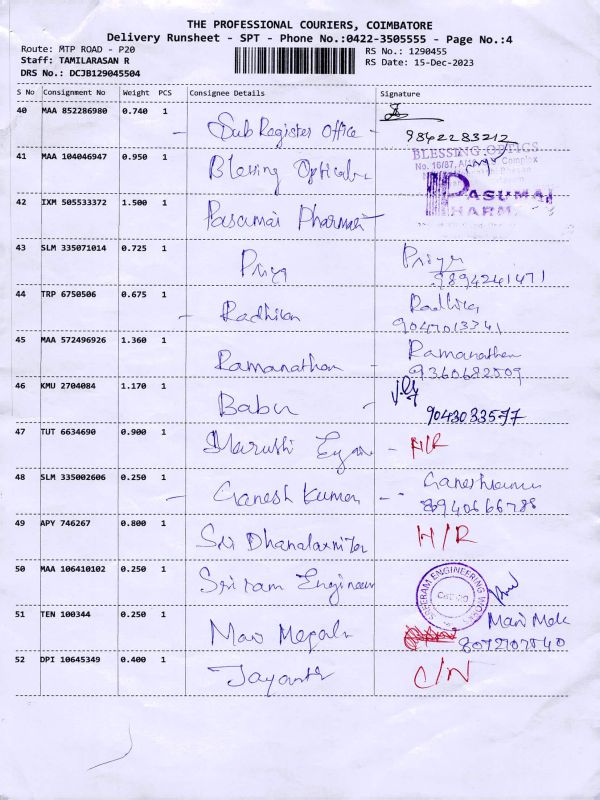 THE PROFESSIONAL COURIERS, COIMBATORE
Delivery Runsheet - SPT - Phone No.:0422-3505555 - Page No.:4
Route: MTP ROAD - P20
RS No.: 1290455
Staff: TAMILARASAN R
RS Date: 15-Dec-2023
DRS No.: DCJB129045504
S No Consignment No Weight PCS Consignee Details Signature
40 MAA 852286980 0.740 1
Sub Register Office - 9842283212
41 MAA 104046947 0.950 1
BLESSING OPTICS
No. 16/87, Complex
Blessing
42 IXM 505533372 1.500 1
PASUMAI
PHARMA
Pasumai
43 SLM 335071014 0.725 1
Priya Priya
9894241471
44 TRP 6750506 0.675 1
Radhika Radhika
9047013341
45 MAA 572496926 1.360 1
Ramanathan - Ramanathan
9360682509
46 KMU 2704084 1.170 1
Babu - 9043033577
47 TUT 6634690 0.900 1
Maruthi - N/R
48 SLM 335002606 0.250 1
Ganesh Kumar - Ganesh
8940666788
49 APY 746267 0.800 1
Sri N/R
50 MAA 106410102 0.250 1
Sri ram Engineer
SHREERAM ENGINEERING WORK
51 TEN 100344 0.250 1
8072107840
52 DPI 10645349 0.400 1
C/N